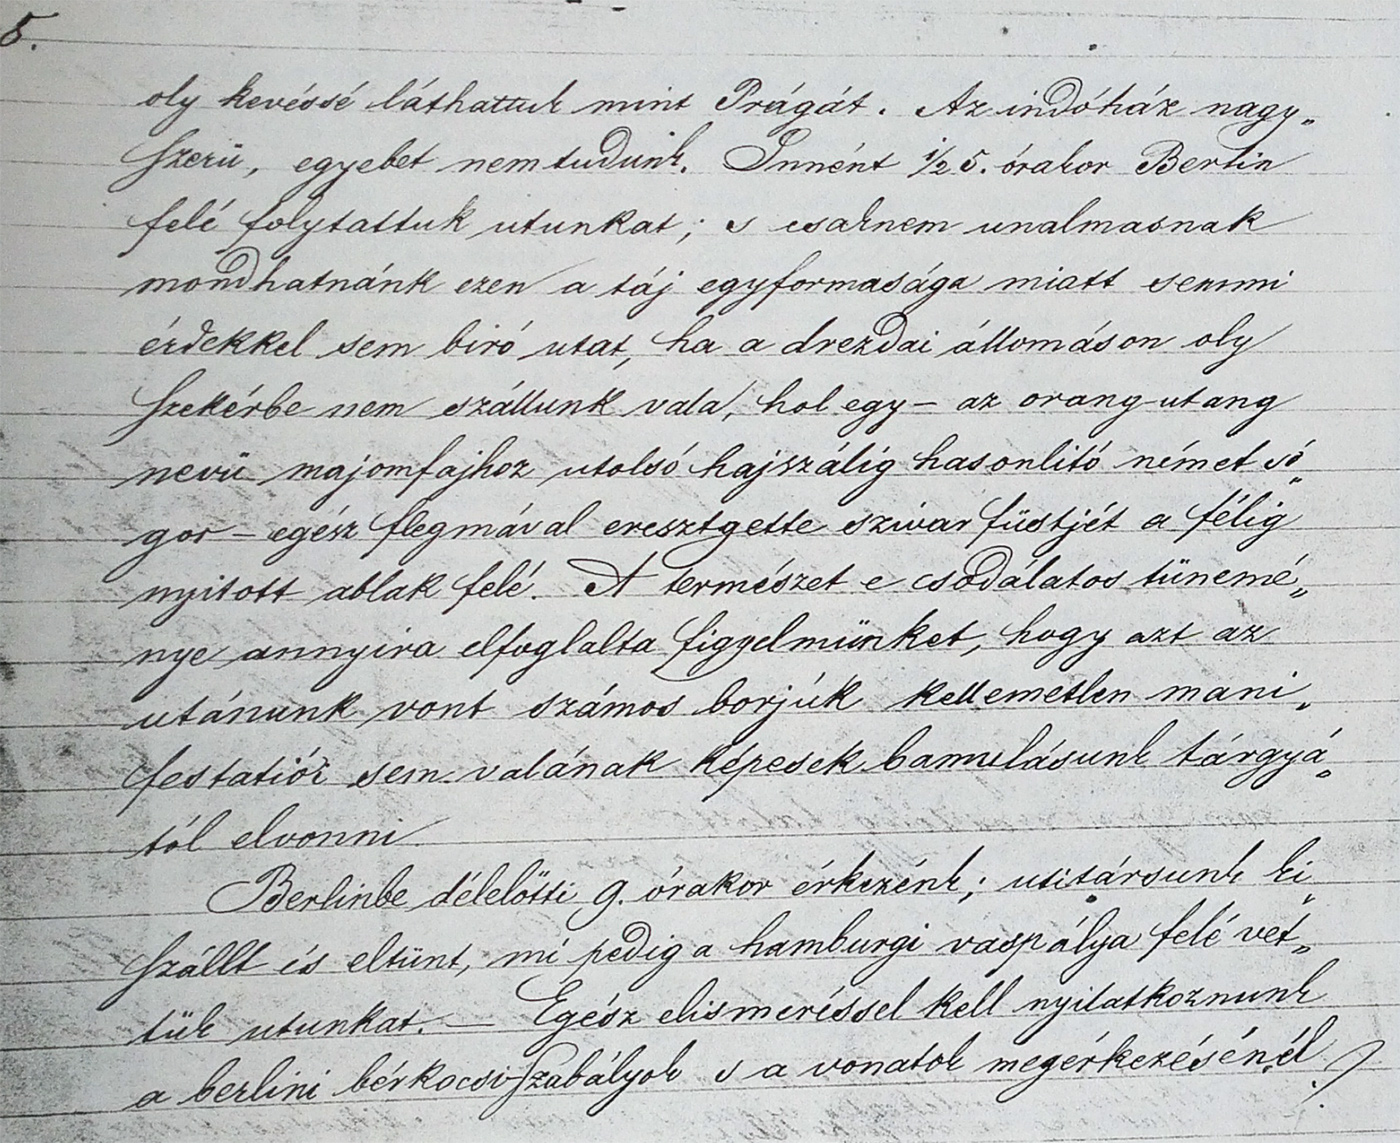 5.
oly kevéssé láthattuk mint Prágát. Az indóház nagy„
szerü, egyebet nem tudunk. Innént ½ 5. órakor Berlin
felé folytattuk utunkat; s csaknem unalmasnak
mondhatnánk ezen a táj egyformasága miatt semmi
érdekkel sem biró utat, ha a drezdai állomáson oly
szekérbe nem szállunk vala, hol egy – az orang-utang
nevü majomfajhoz utolsó hajszálig hasonlitó német só„
gor – egész flegmával eresztgette szivar füstjét a félig
nyitott ablak felé. A természet e csodálatos tünemé„
nye annyira elfoglalta figyelmünket, hogy azt az
utánunk vont számos borjúk kellemetlen mani„
festatiói sem valának képesek bamulásunk tárgyá„
tól elvonni.
Berlinbe délelőtti 9. órakor érkezénk; utitársunk ki„
szállt és eltünt, mi pedig a hamburgi vaspálya felé vet„
tük utunkat. — Egész elismeréssel kell nyilatkoznunk
a berlini bérkocsi szabályok s a vonatok megérkezésénél